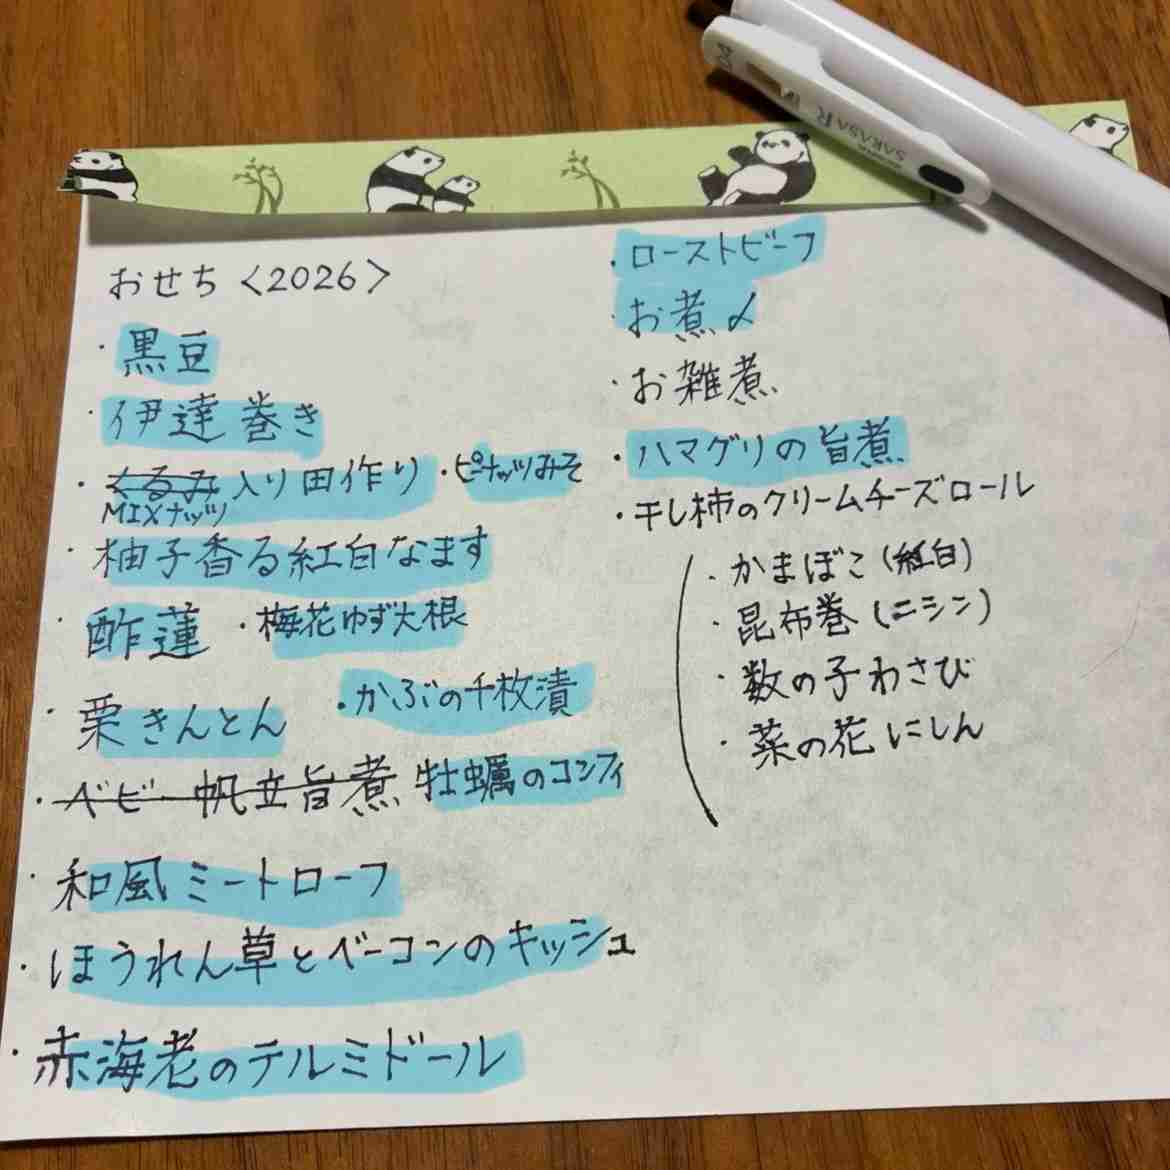 おせち〈2026〉
・黒豆
・伊達巻き
・くるみ入り田作り ・ピーナッツみそ
MIXナッツ
・柚子香る紅白なます
・酢蓮 ・梅花ゆず大根
・栗きんとん ・かぶの千枚漬
・ベビー帆立旨煮 牡蠣のコンフィ
・和風ミートローフ
・ほうれん草とベーコンのキッシュ
・赤海老のテルミドール
・ローストビーフ
・お煮〆
・お雑煮
・ハマグリの旨煮
・干し柿のクリームチーズロール
・かまぼこ(紅白)
・昆布巻(ニシン)
・数の子わさび
・菜の花にしん
SARASA R
04